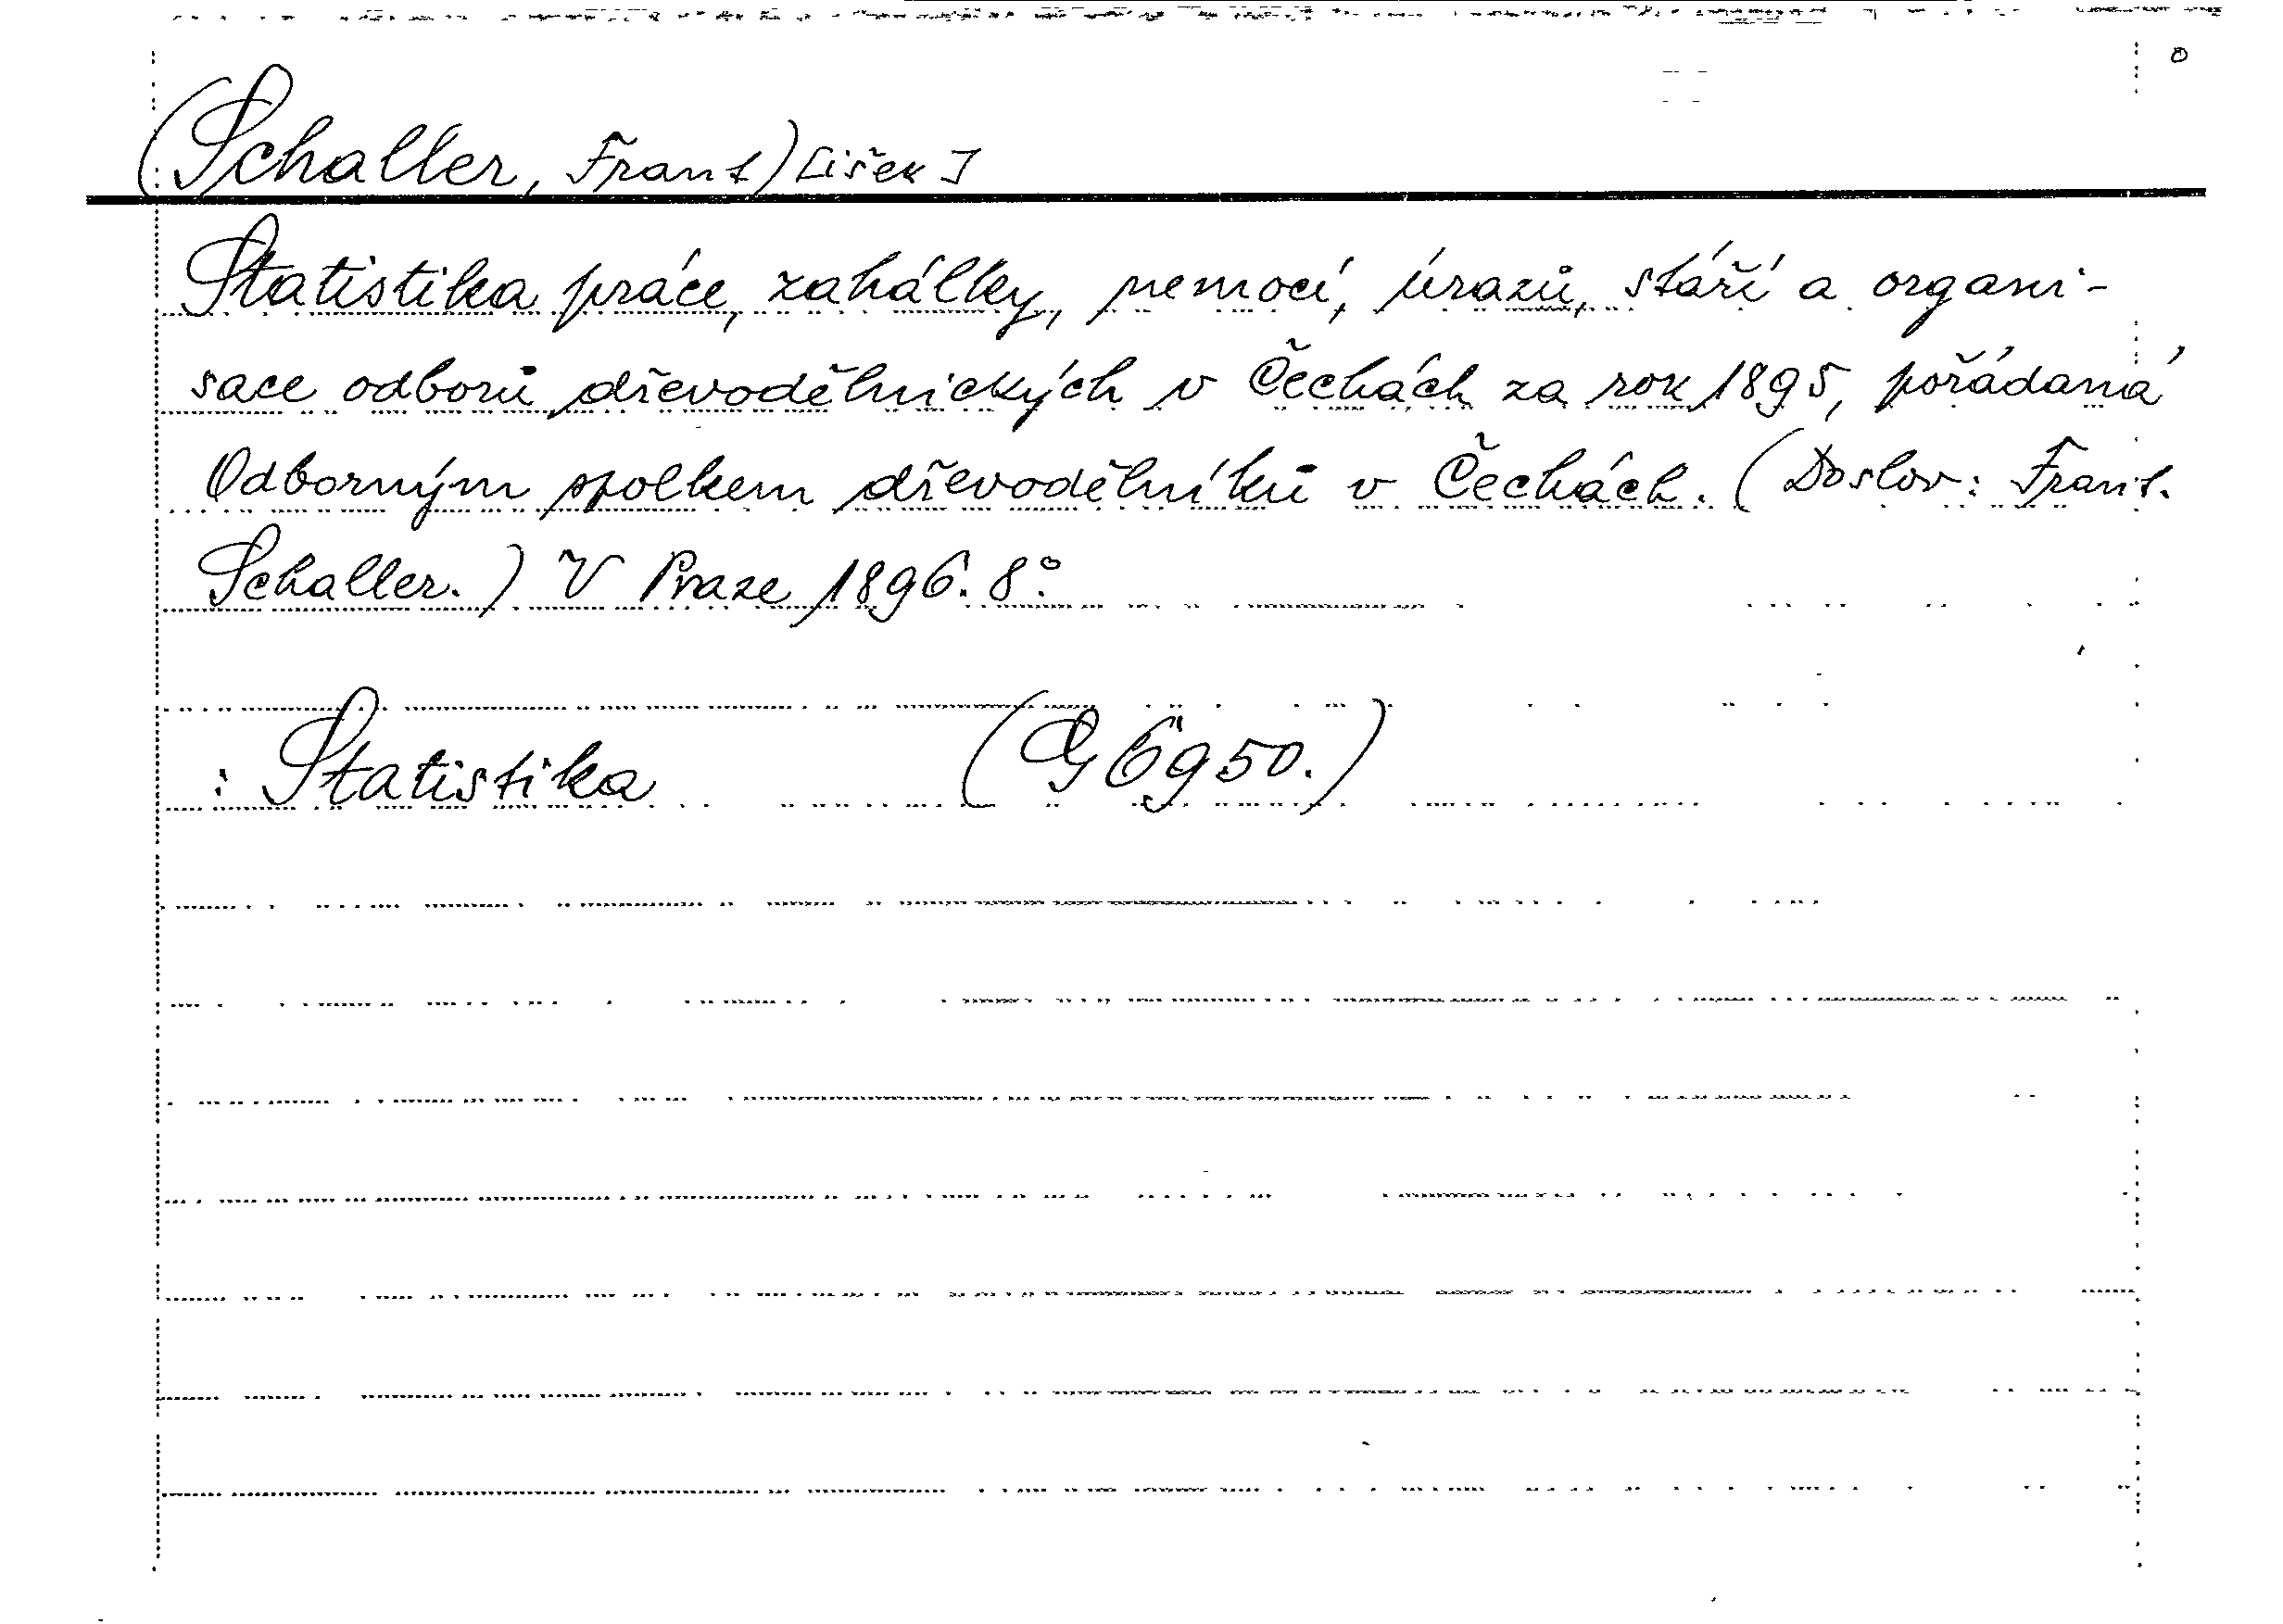 (Schaller, Frant) [išek]
Statistika práce, zahálky, nemocí, úrazů, stáří a organi-
sace odborů dřevodělnických v Čechách za rok 1895, pořádaná
Odborným spolkem dřevodělníků v Čechách. (Doslov: Frant.
Schaller.) V Praze 1896. 8°.
: Statistika (G 6950.)